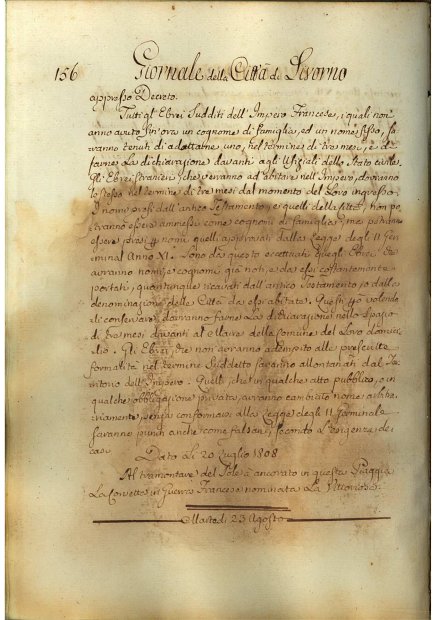 156 Giornale della Città di Livorno
appresso Decreto.
Tutti gl'Ebrei Sudditi dell'Impero Francese, i quali non
anno avuto fin'ora un cognome di famiglia, ed un nome fisso, sa
ranno tenuti di adottarne uno, nel termine di tre mesi, e di
farne la dichiarazione davanti agli Ufiziali dello Stato civile.
Gli Ebrei stranieri, che verranno ad abitare nell'Impero, dovranno
lo stesso nel termine di tre mesi dal momento del loro ingresso
I nomi presi dall'antico Testamento, e quelli delle Città, non po
tranno essere ammessi come cognomi di famiglia; ma potranno
essere presi nomi, quelli approvati dalla Legge degli 11 Ger
minal Anno XI. Sono da questo eccettuati quegli Ebrei che
avranno nomi, e cognomi già noti, e da essi costantemente
portati, quantunque ricavati dall'antico Testamento, o dalla
denominazione delle Città da essi abitate. Questi volendo
li conservare, dovranno farne la dichiarazione nello spazio
di tre mesi davanti al Maire della Comune del loro domici
lio. Gli Ebrei, che non avranno adempito alle prescritte
formalità nel termine suddetto saranno allontanati dal Ter
ritorio dell'Impero. Quelli, che in qualche atto pubblico, o in
qualche obbligazione privata, avranno cambiato nome arbitra
riamente, senza conformarsi alla Legge degli 11 Germinale
saranno puniti anche come falsari, secondo l'esigenza de
casi.
Dato li 20 Luglio 1808
Al tramontare del Sole à ancorato in questa Spiaggia
La Corvetta in Guerra Francese nominata La Vittoriosa.
Martedì 23 Agosto